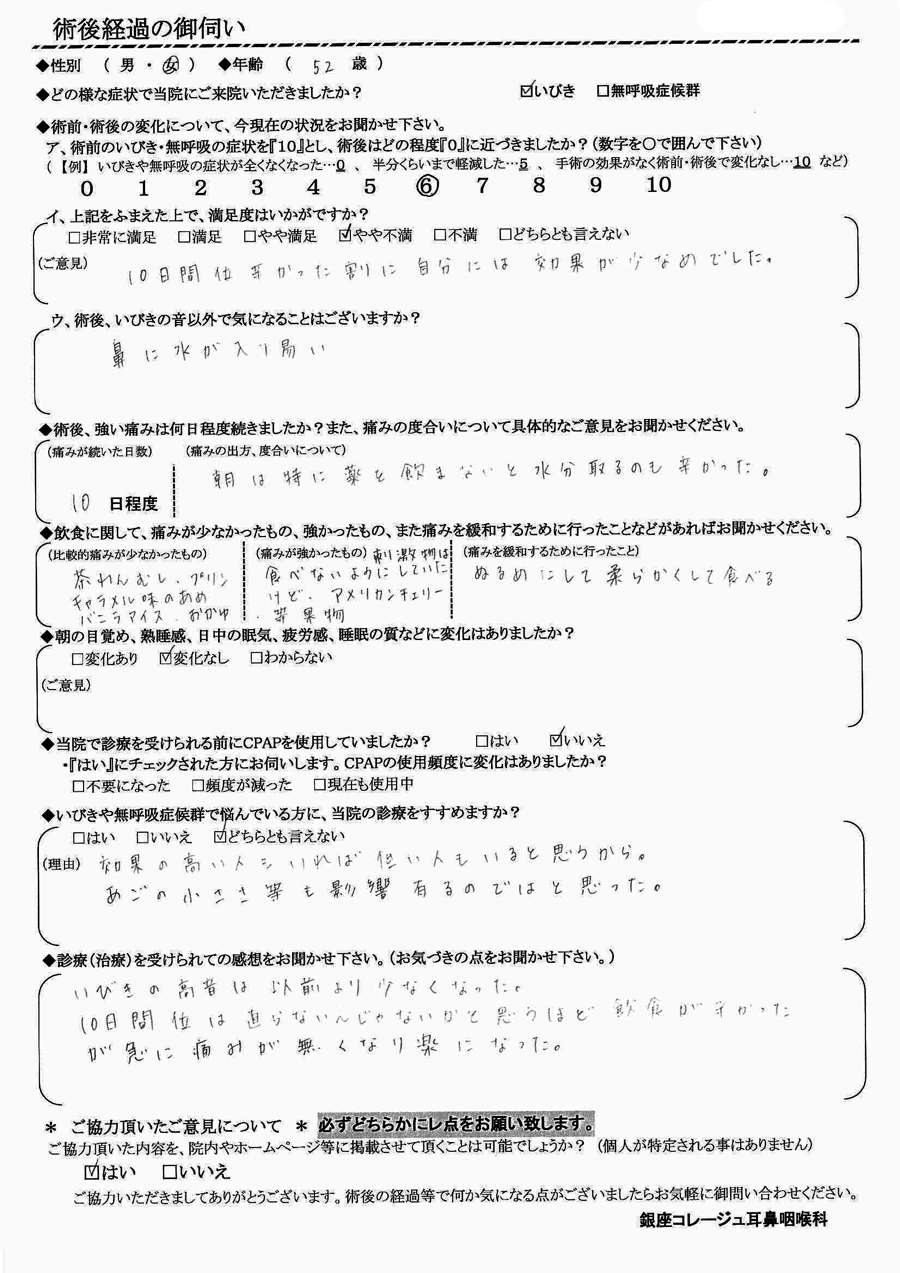 術後経過の御伺い
◆性別 ( 男 ・ 女 ) ◆年齢 ( 52 歳 )
◆どの様な症状で当院にご来院いただきましたか? ☑いびき □無呼吸症候群
◆術前・術後の変化について、今現在の状況をお聞かせ下さい。
ア、術前のいびき・無呼吸の症状を『10』とし、術後はどの程度『0』に近づきましたか?(数字を〇で囲んで下さい)
(【例】いびきや無呼吸の症状が全くなくなった…0 、 半分くらいまで軽減した…5 、 手術の効果がなく術前・術後で変化なし…10 など)
0 1 2 3 4 5 ⑥ 7 8 9 10
イ、上記をふまえた上で、満足度はいかがですか?
□非常に満足 □満足 □やや満足 ☑やや不満 □不満 □どちらとも言えない
(ご意見)
10日間位辛かった割に自分には効果が少なめでした。
ウ、術後、いびきの音以外で気になることはございますか?
鼻に水が入り易い
◆術後、強い痛みは何日程度続きましたか?また、痛みの度合いについて具体的なご意見をお聞かせください。
(痛みが続いた日数) (痛みの出方、度合いについて)
朝は特に薬を飲まないと水分取るのも辛かった。
10 日程度
◆飲食に関して、痛みが少なかったもの、強かったもの、また痛みを緩和するために行ったことなどがあればお聞かせください。
(比較的痛みが少なかったもの) (痛みが強かったもの) 刺激物は (痛みを緩和するために行ったこと)
茶わんむし、プリン 食べないようにしていた ぬるめにして柔らかくして食べる
キャラメル味のあめ けど、アメリカンチェリー
バニラアイス、おかゆ 、等果物
◆朝の目覚め、熟睡感、日中の眠気、疲労感、睡眠の質などに変化はありましたか?
□変化あり ☑変化なし □わからない
(ご意見)
◆当院で診療を受けられる前にCPAPを使用していましたか? □はい ☑いいえ
・『はい』にチェックされた方にお伺いします。CPAPの使用頻度に変化はありましたか?
□不要になった □頻度が減った □現在も使用中
◆いびきや無呼吸症候群で悩んでいる方に、当院の診療をすすめますか?
□はい □いいえ ☑どちらとも言えない
(理由) 効果の高い人もいれば低い人もいると思うから。
あごの小ささ等も影響有るのではと思った。
◆診療(治療)を受けられての感想をお聞かせ下さい。(お気づきの点をお聞かせ下さい。)
いびきの高音は以前より少なくなった。
10日間位は直らないんじゃないかと思うほど飲食が辛かった
が急に痛みが無くなり楽になった。
＊ ご協力頂いたご意見について ＊ 必ずどちらかにレ点をお願い致します。
ご協力頂いた内容を、院内やホームページ等に掲載させて頂くことは可能でしょうか? (個人が特定される事はありません)
☑はい □いいえ
ご協力いただきましてありがとうございます。術後の経過等で何か気になる点がございましたらお気軽に御問い合わせください。
銀座コレージュ耳鼻咽喉科